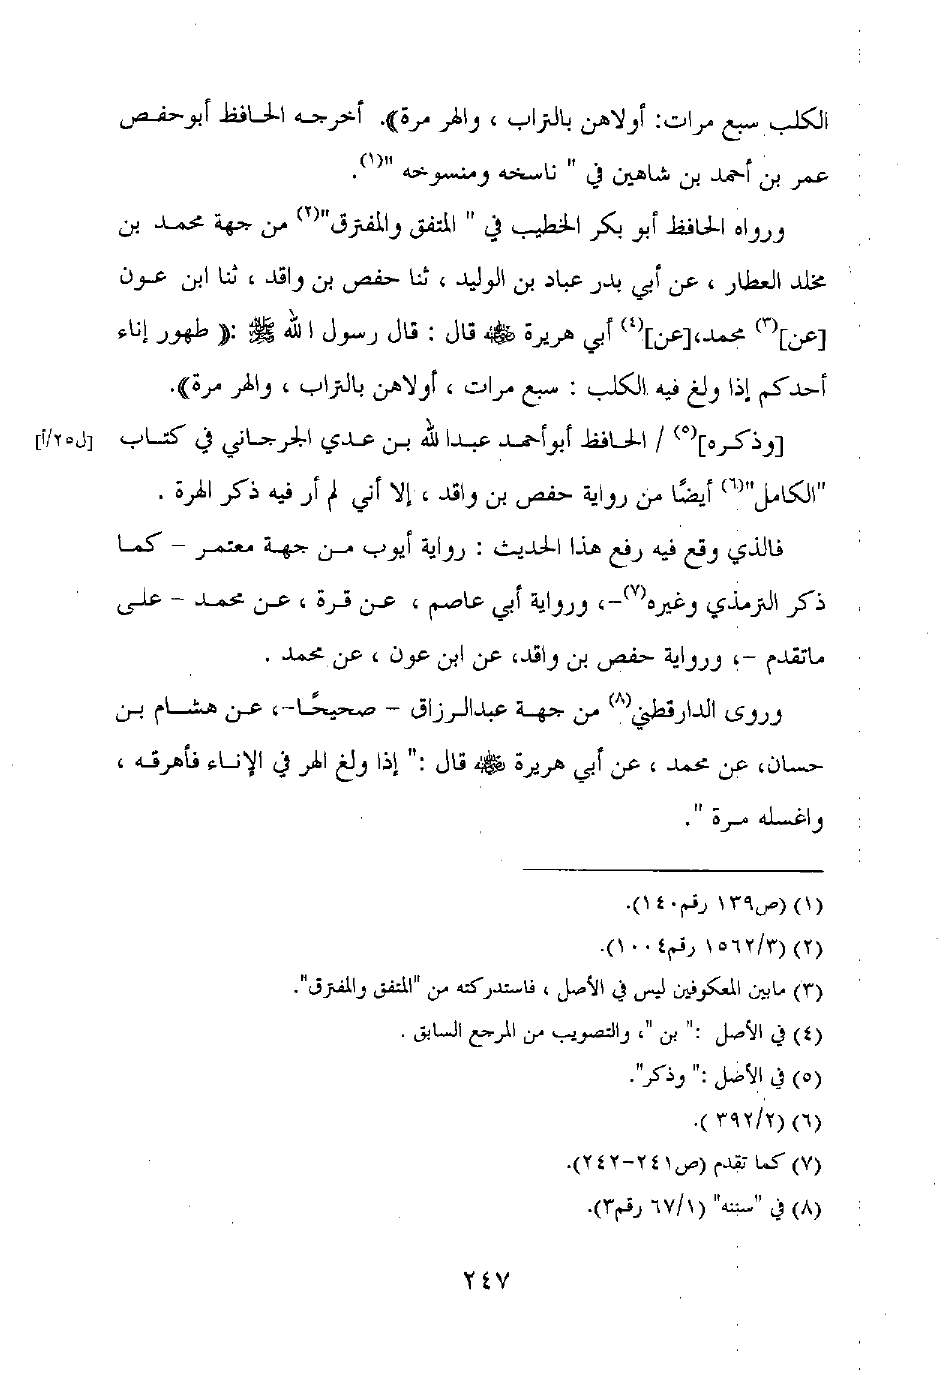 الكلب سبع مرات: أولاهن بالتراب ، والهر مرة﴾. أخرجه الحافظ أبوحفص
عمر بن أحمد بن شاهين في " ناسخه ومنسوخه "(١).
ورواه الحافظ أبو بكر الخطيب في " المتفق والمفترق"(٢) من جهة محمد بن
مخلد العطار ، عن أبي بدر عباد بن الوليد ، ثنا حفص بن واقد ، ثنا ابن عون
[عن](٣) محمد،[عن](٤) أبي هريرة ﷺ قال : قال رسول الله ﷺ :﴿ طهور إناء
أحدكم إذا ولغ فيه الكلب : سبع مرات ، أولاهن بالتراب ، والهر مرة﴾.
[وذكره](٥) / الحافظ أبوأحمد عبدالله بن عدي الجرجاني في كتاب [ل٢٥/أ]
"الكامل"(٦) أيضًا من رواية حفص بن واقد ، إلا أني لم أر فيه ذكر الهرة .
فالذي وقع فيه رفع هذا الحديث : رواية أيوب من جهة معتمر – كما
ذكر الترمذي وغيره(٧)–، ورواية أبي عاصم ، عن قرة ، عن محمد – على
ماتقدم –، ورواية حفص بن واقد، عن ابن عون ، عن محمد .
وروى الدارقطني(٨) من جهة عبدالرزاق – صحيحًا–، عن هشام بن
حسان، عن محمد ، عن أبي هريرة ﷺ قال :" إذا ولغ الهر في الإناء فأهرقه ،
واغسله مرة ".
(١) (ص١٣٩ رقم١٤٠).
(٢) (١٥٦٢/٣ رقم١٠٠٤).
(٣) مابين المعكوفين ليس في الأصل ، فاستدركته من "المتفق والمفترق".
(٤) في الأصل :" بن "، والتصويب من المرجع السابق .
(٥) في الأصل :" وذكر".
(٦) (٣٩٢/٢ ).
(٧) كما تقدم (ص٢٤١–٢٤٢).
(٨) في "سننه" (٦٧/١ رقم٣).
٢٤٧